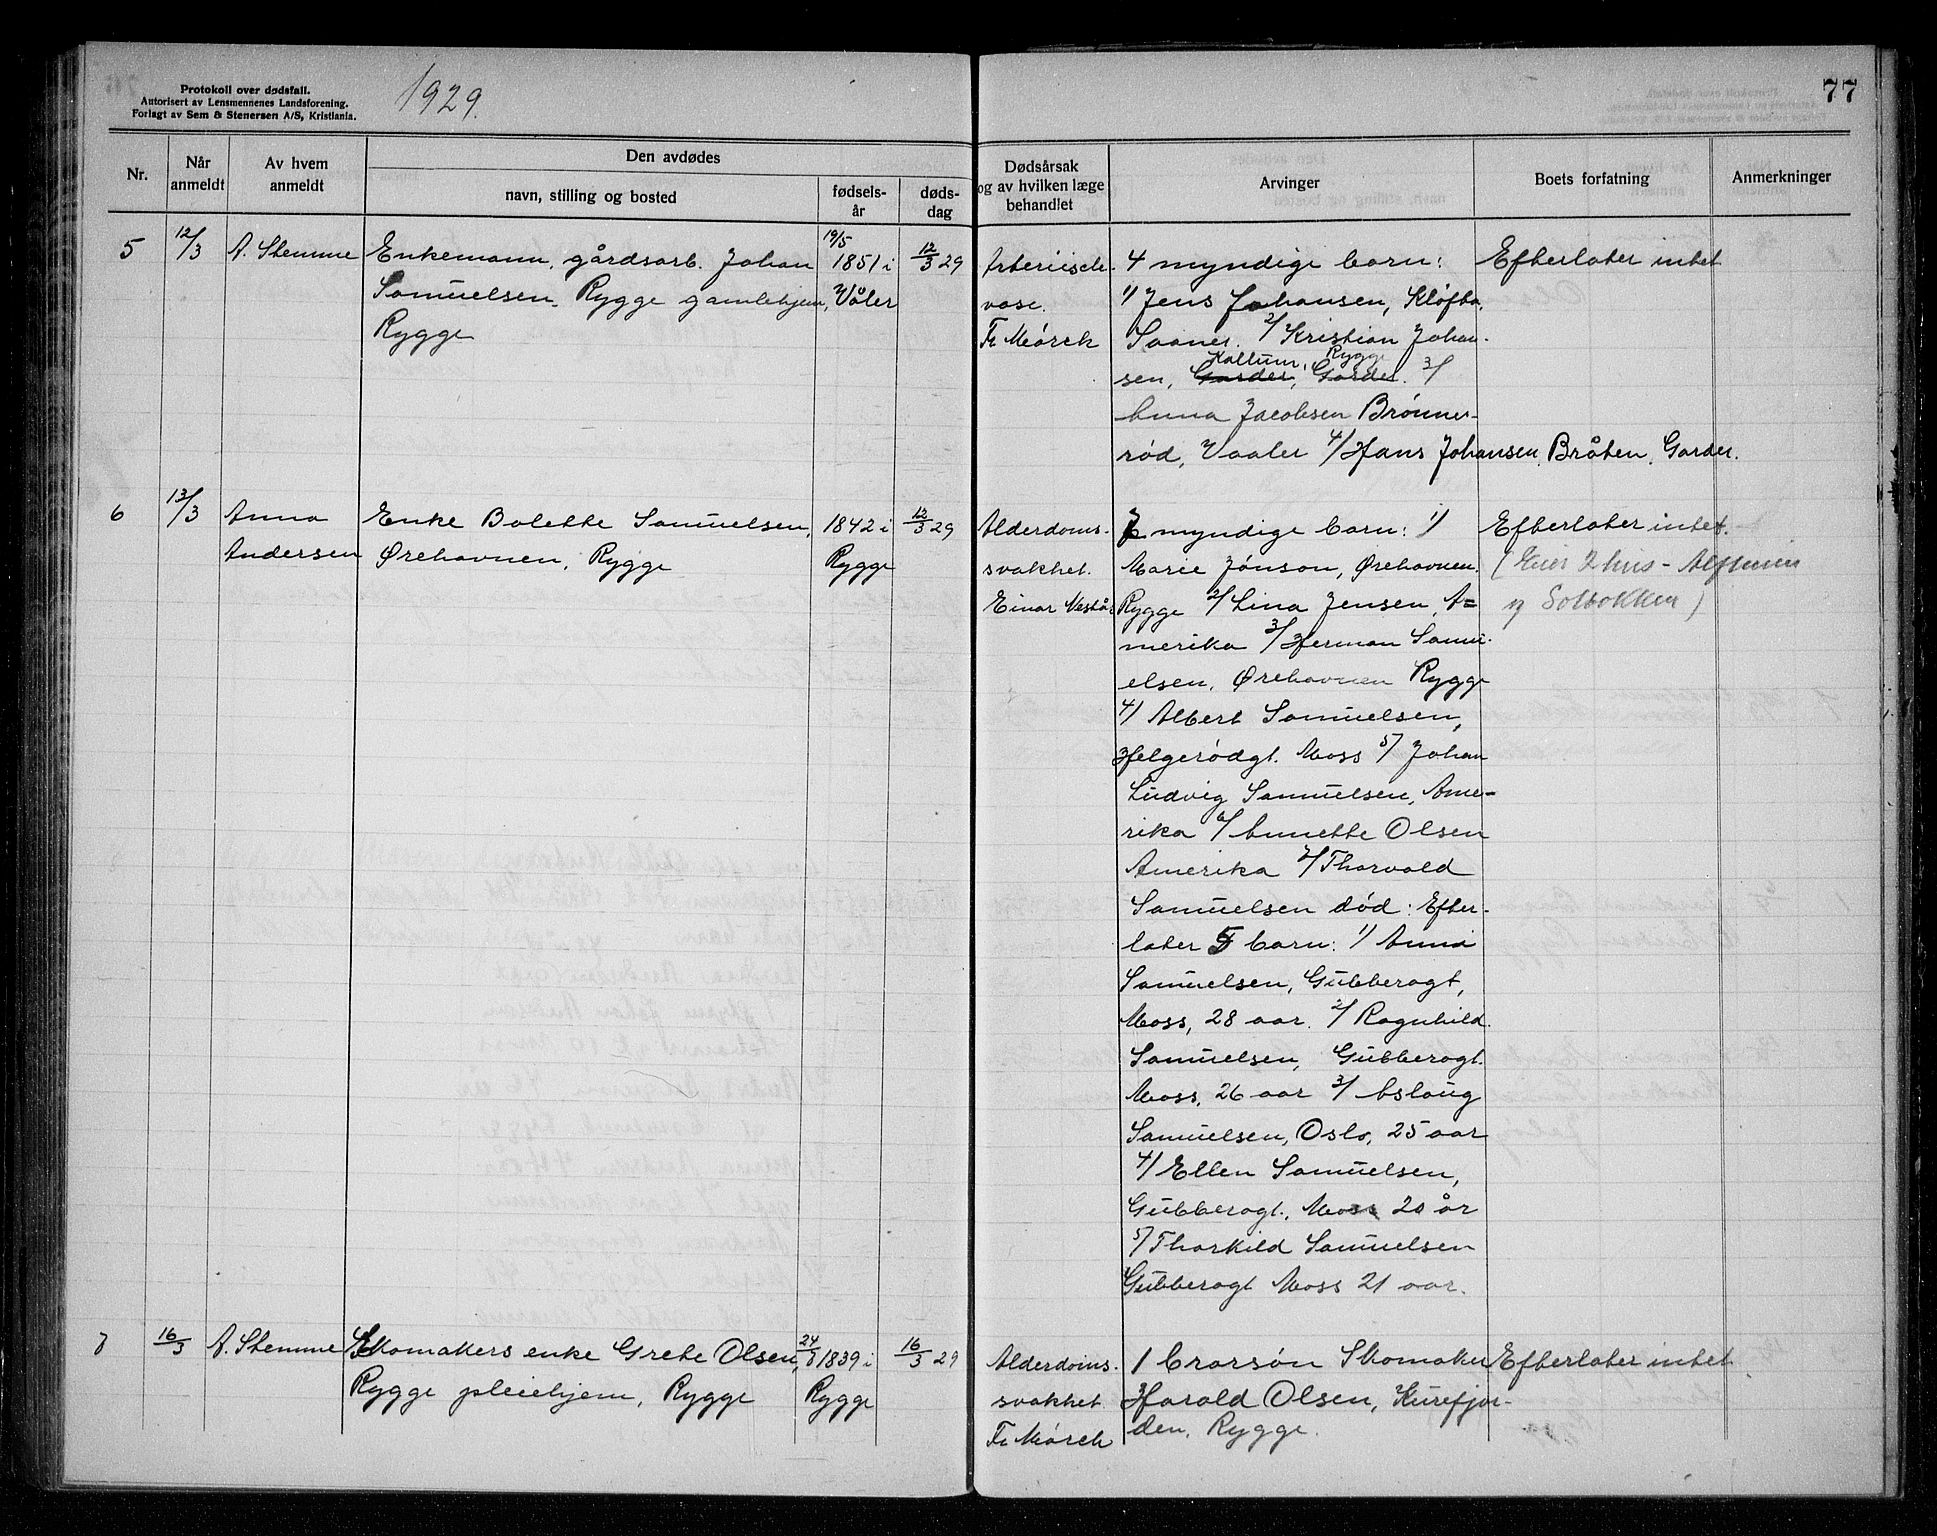 Protokoll over dødsfall.
Autorisert av Lensmennenes Landsforening.
Forlagt av Sem & Stenersen A/S, Kristiania.
1929.
77
Nr.
Når anmeldt
Av hvem anmeldt
Den avdødes
navn, stilling og bosted
fødsels-år
døds-dag
Dødsårsak og av hvilken læge behandlet
Arvinger
Boets forfatning
Anmerkninger
5
12/3
A. Stemme
Enkemann, gårdsarb. Johan
Samuelsen, Rygge gamlehjem,
Rygge
19/5
1851 i
Våler
12/3 29
vose.
Fr Mørch
4 myndige barn:
1/ Jens Johansen, Kløfba,
Saaner. 2/ Kristian Johan-
Kallum, Rygge
sen, Garder, Garder. 3/
Anna Jacobsen Brønne-
rød, Vaaler 4/ Hans Johansen, Bråten, Garder.
Efterlater intet
6
13/3
Anna
Andersen
Enke Bolette Samuelsen,
Ørehavnen, Rygge
1842 i
Rygge
12/3 29
Alderdoms-
svakhet.
Einar
myndige barn: 1/
Marie Jónson, Ørehavnen,
Rygge 2/ Lina Jensen, A=
merika 3/ Herman Samu-
elsen, Ørehavnen Rygge
4/ Albert Samuelsen,
Helgerødgt. Moss 5/ Johan
Ludvig Samuelsen, Ame-
rika 6/ Annette Olsen
Amerika 7/ Thorvald
Samuelsen død: Efter-
later 5 barn: 1/ Anna
Samuelsen, Gubberogt,
Moss, 28 aar. 2/ Ragnhild
Samuelsen, Gubberogt.
Moss, 26 aar 3/ Aslaug
Samuelsen, Oslo, 25 aar
4/ Ellen Samuelsen,
Gubberogt., Moss 20 år
5/ Thorkild Samuelsen
Gubberogt Moss 21 aar.
Efterlater intet.
(Eier 2 hus - Alfheim
og Solbakken)
7
16/3
A. Stemme
Skomakers enke Grete Olsen,
Rygge pleiehjem, Rygge
24/8 1839 i
Rygge
16/3 29
Alderdoms-
svakhet
Fr Mørch
1 brorsøn Skomaker
Harald Olsen, Kurefjor-
den, Rygge.
Efterlater intet